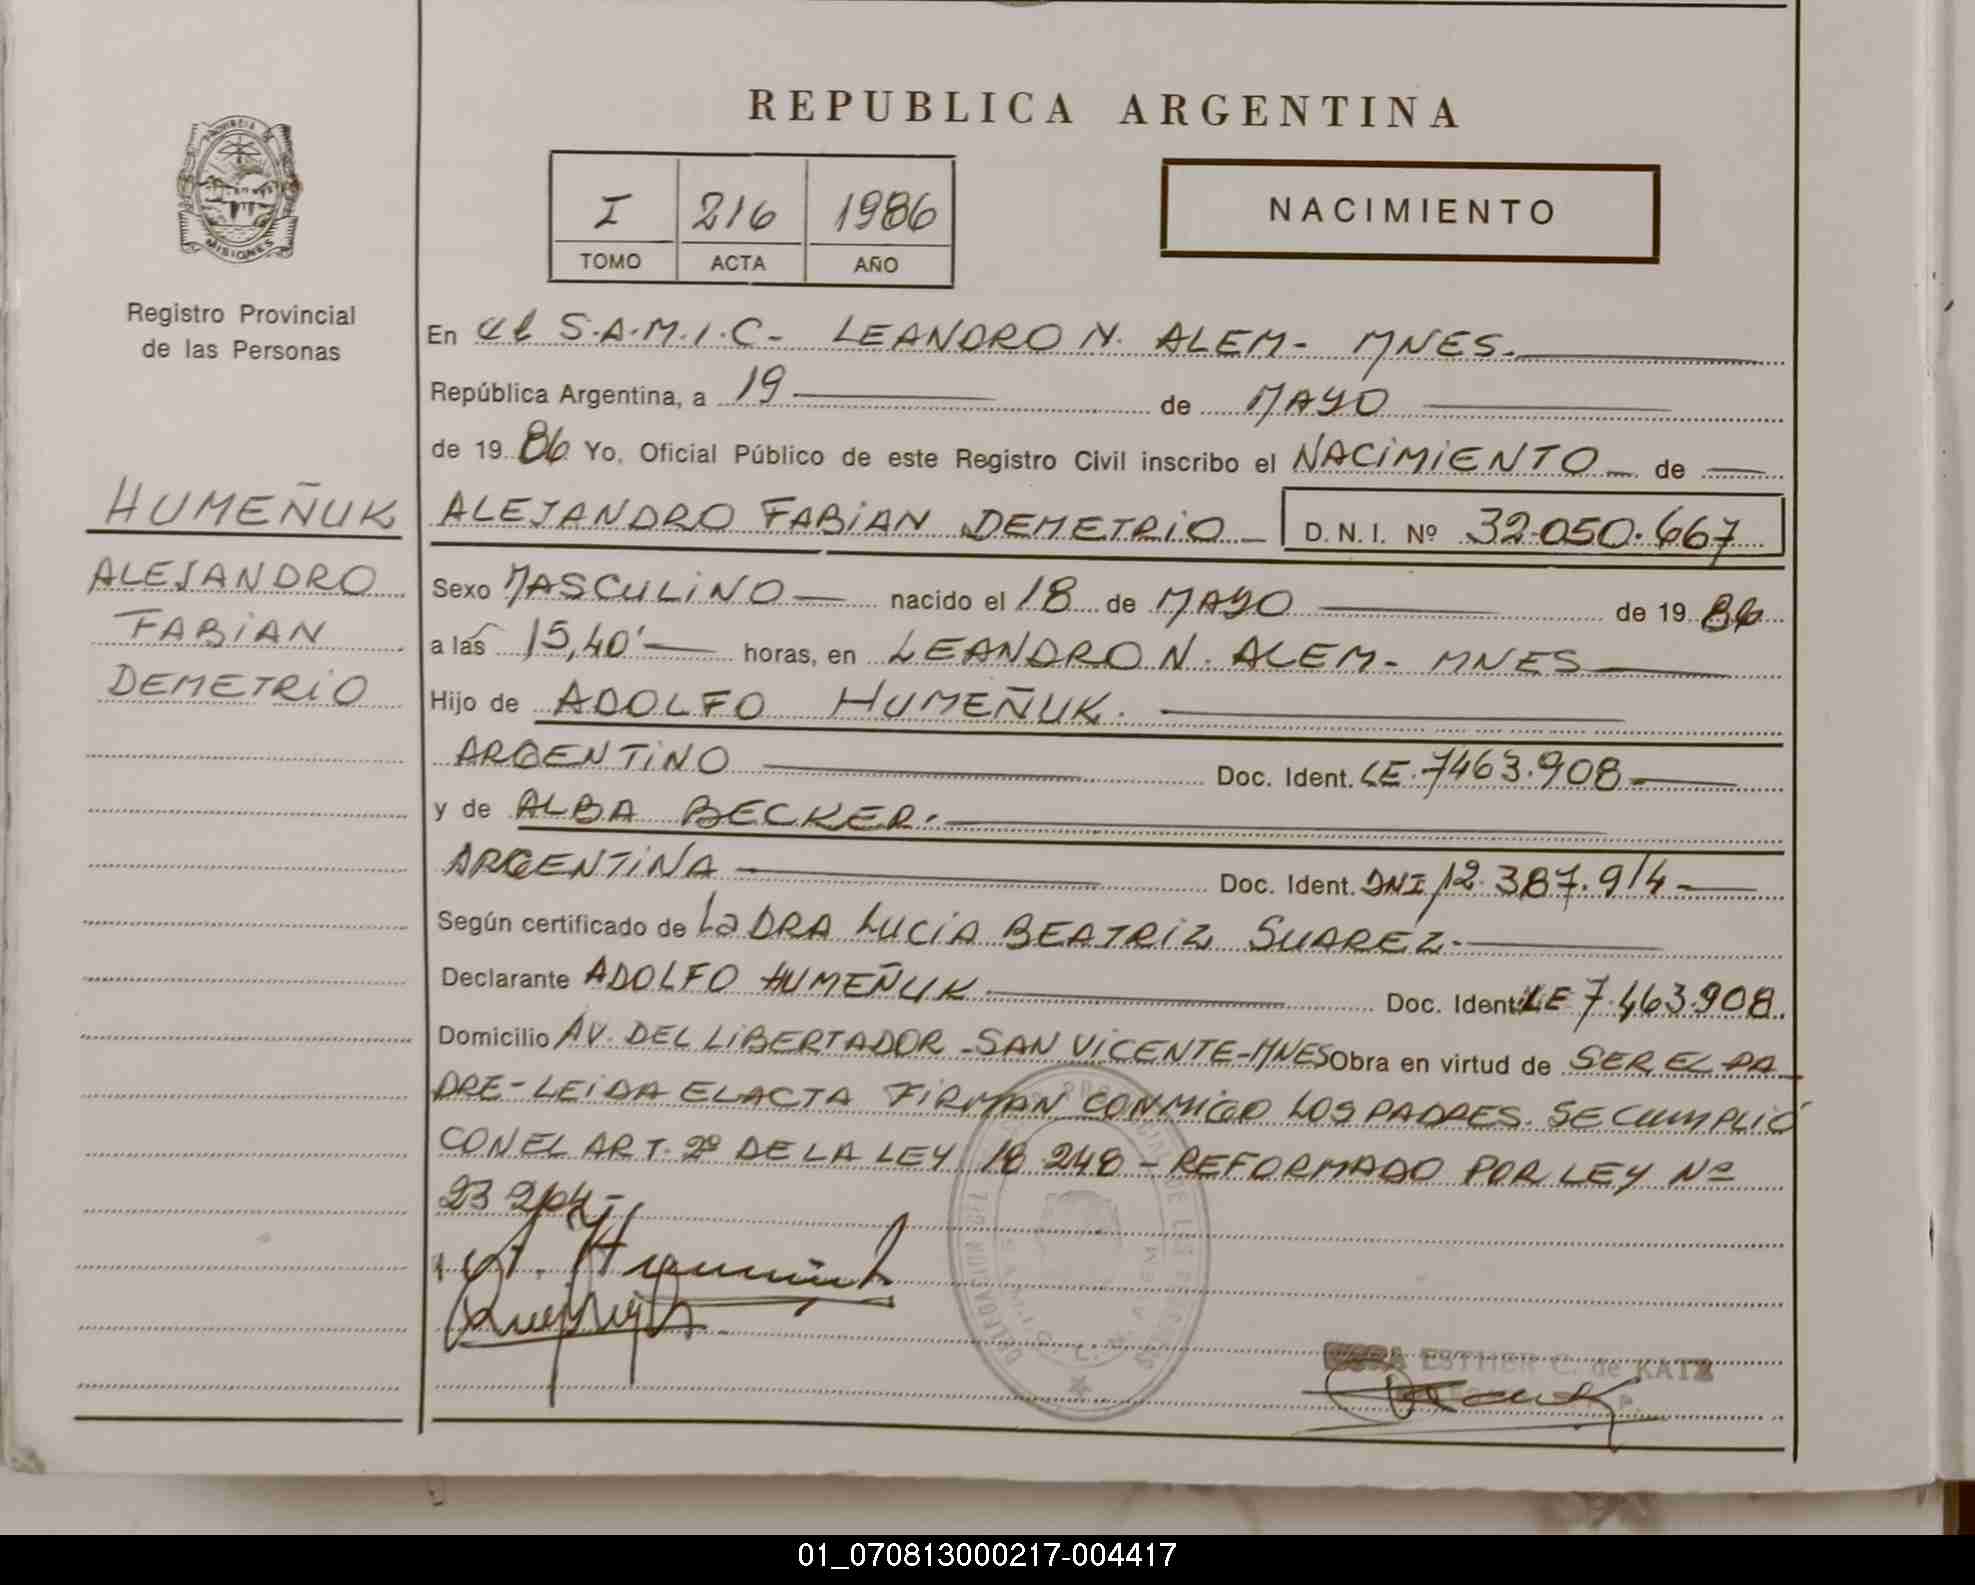 REPUBLICA ARGENTINA
PROVINCIA DE MISIONES
Registro Provincial
de las Personas
I 216 1986
TOMO ACTA AÑO
NACIMIENTO
En el S.A.M.I.C- LEANDRO N. ALEM- MNES.
República Argentina, a 19 de MAYO
de 19 86 Yo, Oficial Público de este Registro Civil inscribo el NACIMIENTO de
HUMEÑUK
ALEJANDRO
FABIAN
DEMETRIO
ALEJANDRO FABIAN DEMETRIO D. N. I. Nº 32.050.667
Sexo MASCULINO nacido el 18 de MAYO de 19 86
a las 15,40' horas, en LEANDRO N. ALEM- MNES
Hijo de ADOLFO HUMEÑUK.
ARGENTINO Doc. Ident. LE. 7463.908
y de ALBA BECKER.
ARGENTINA Doc. Ident. DNI 12.387.914
Según certificado de La DRA LUCIA BEATRIZ SUAREZ.
Declarante ADOLFO HUMEÑUK Doc. Ident. LE 7.463.908.
Domicilio AV. DEL LIBERTADOR -SAN VICENTE-MNES Obra en virtud de SER EL PA
DRE- LEIDA EL ACTA FIRMAN CONMIGO LOS PADRES. SE CUMPLIÓ
CON EL ART. 2º DE LA LEY 18 248 - REFORMADO POR LEY Nº
23 264-
ESTHER C. de KATZ
01_070813000217-004417